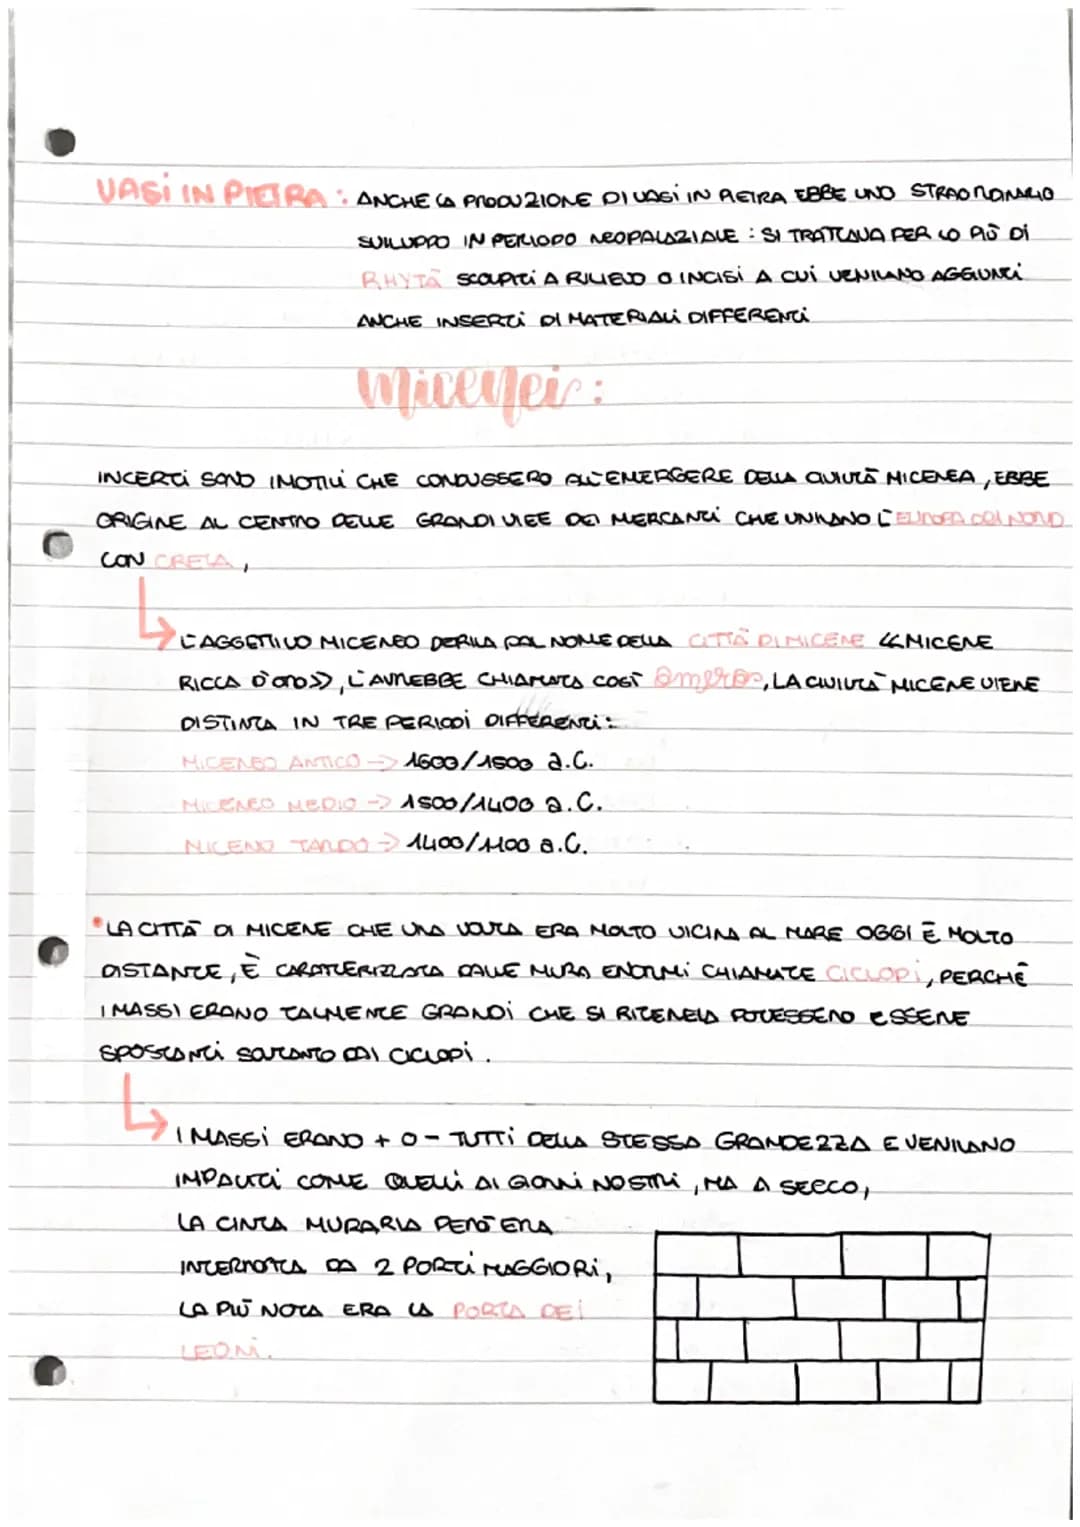 VASI IN PIETRA: ANCHE LA PRODUZIONE DI VASI IN PIETRA EBBE UNO STRAORDINARIO
SVILUPPO IN PERIODO NEOPALAZIALE: SI TRATTAVA PER LO PIÙ DI
RHYTÀ SCOLPITI A RILIEVO O INCISI A CUI VENIVANO AGGIUNTI
ANCHE INSERTI DI MATERIALI DIFFERENTI
Micenei:
INCERTI SONO I MOTIVI CHE CONDUSSERO ALL'EMERGERE DELLA CIVILTÀ MICENEA, EBBE
ORIGINE AL CENTRO DELLE GRANDI VIEE DEI MERCANTI CHE UNIVANO L'EUROPA DEL NORD
CON CRETA,
L'AGGETTIVO MICENEO DERIVA DAL NOME DELLA CITTÀ DI MICENE <<MICENE
RICCA D'ORO>>, L'AVREBBE CHIAMATA COSÌ Omero, LA CIVILTÀ MICENE VIENE
DISTINTA IN TRE PERIODI DIFFERENTI:
MICENEO ANTICO -> 1600/1500 a.C.
MICENEO MEDIO -> 1500/1400 a.C.
MICENO TARDO -> 1400/1100 a.C.
• LA CITTÀ DI MICENE CHE UNA VOLTA ERA MOLTO VICINA AL MARE OGGI È MOLTO
DISTANTE, È CARATTERIZZATA DALLE MURA ENORMI CHIAMATE CICLOPI, PERCHÉ
I MASSI ERANO TALMENTE GRANDI CHE SI RITENEVA POTESSERO ESSERE
SPOSTANTI SOLTANTO DAI CICLOPI.
I MASSI ERANO + O - TUTTI DELLA STESSA GRANDEZZA E VENIVANO
IMPALITI COME QUELLI AI GIORNI NOSTRI, MA A SECCO,
LA CINTA MURARIA PERÒ ERA
INTERROTTA DA 2 PORTI MAGGIORI,
LA PIÙ NOTA ERA LA PORTA DEI
LEONI.